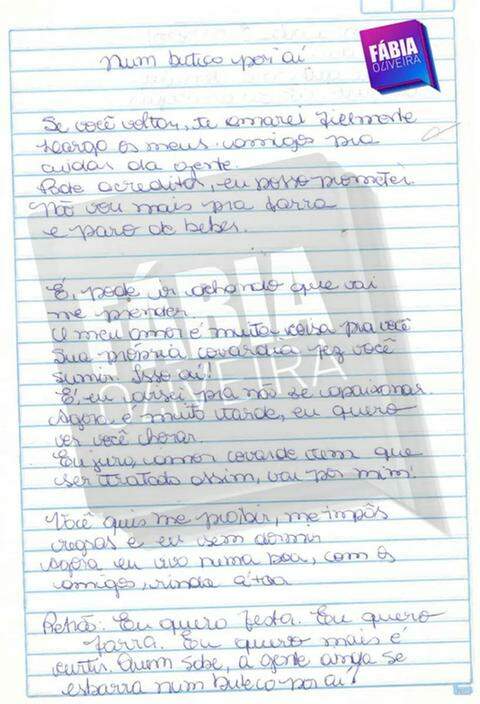 FÁBIA
OLIVEIRA
Num buteco por aí
Se você voltar, te amarei fielmente
Largo os meus amigos pra
cuidar da gente.
Pode acreditar, eu posso prometer.
Não vou mais pra farra
e paro de beber.
É, pode ir achando que vai
me prender.
O meu amor é muita coisa pra você
Sua própria covardia fez você
sumir. Isso aí!
É, eu avisei pra não se apaixonar.
Agora é muito tarde, eu quero
ver você chorar.
Eu juro, amor covarde tem que
ser tratado assim, vai por mim!
FÁBIA
OLIVEIRA
Você quis me proibir, me impôs
regras e eu sem dormir
Agora eu vivo numa boa, com os
amigos, rindo à toa
Refrão: Eu quero festa. Eu quero
farra. Eu quero mais é
curtir. Quem sabe, a gente ainda se
esbarra num buteco por aí!